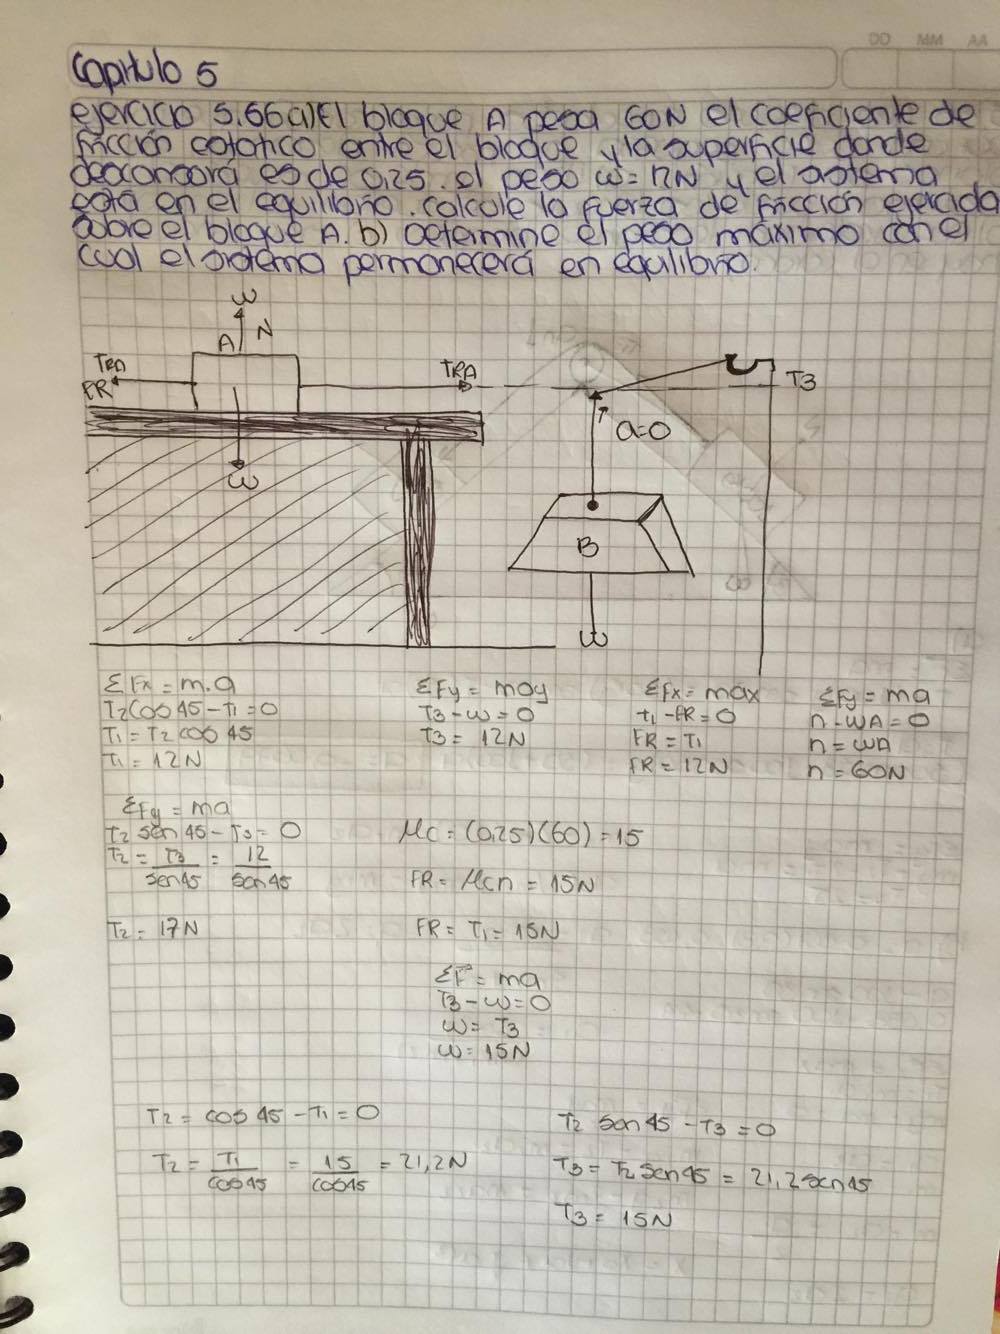 DD MM AA
Capitulo 5
ejercicio 5.66 a) El bloque A pesa 60N el coeficiente de
fricción estatico entre el bloque y la superficie donde
descansará es de 0,25. el peso ω=12N y el sistema
está en el equilibrio. calcule la fuerza de fricción ejercida
sobre el bloque A. b) Determine el peso máximo con el
cual el sistema permanecerá en equilibrio.
ω
A N
TRA
FR
TRA
T3
a=0
B
ω
ω
ΣFx = m.a
T2 cos 45 - T1 = 0
T1 = T2 cos 45
T1 = 12N
ΣFy = may
T3 - ω = 0
T3 = 12N
ΣFx = max
t1 - FR = 0
FR = T1
FR = 12N
ΣFy = ma
n - ωA = 0
n = ωA
n = 60N
ΣFy = ma
T2 sen 45 - T3 = 0
T2 = T3/sen45 = 12/sen45
T2 = 17N
Mc = (0,25)(60) = 15
FR = Mcn = 15N
FR = T1 = 15N
ΣF = ma
T3 - ω = 0
ω = T3
ω = 15N
T2 = cos 45 - T1 = 0
T2 = T1/cos45 = 15/cos45 = 21,2N
T2 sen 45 - T3 = 0
T3 = T2 sen 45 = 21,2 sen 45
T3 = 15N